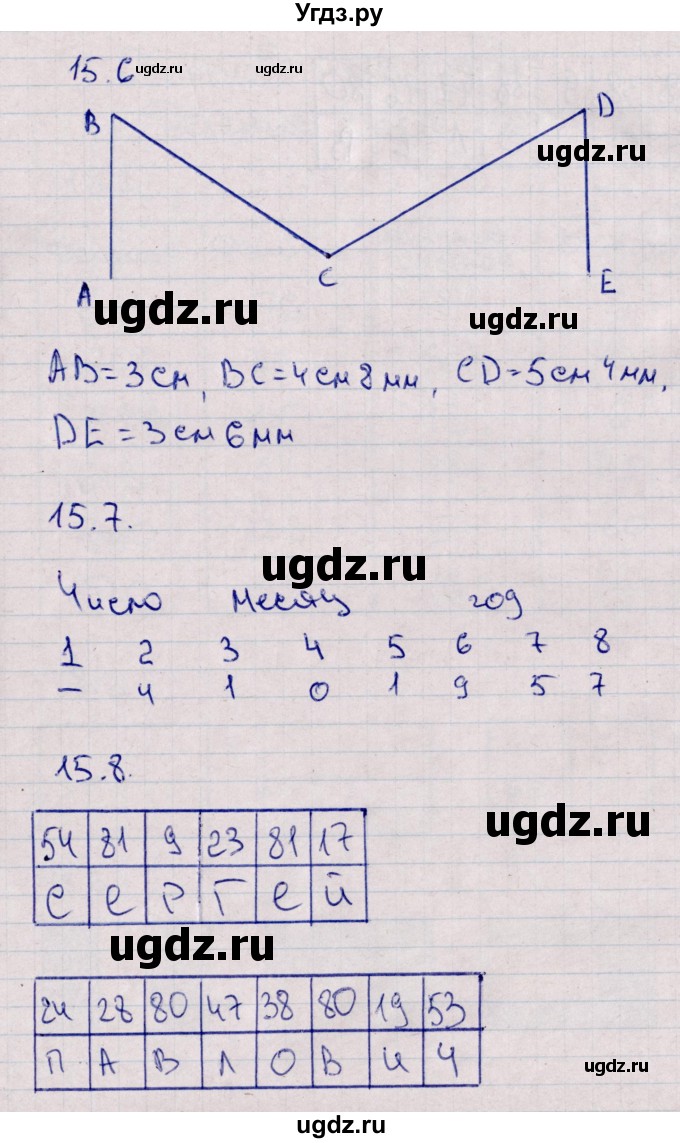 Угдз.ру
15.6
ugdz.ru ugdz.ru
B D
ugdz.ru
C
A E
ugdz.ru ugdz.ru
AB=3см, BC=4см 8мм, CD=5см 4мм,
DE=3см 6мм
15.7.
ugdz.ru
Число месяц год
1 2 3 4 5 6 7 8
— 4 1 0 1 9 5 7
15.8.
ugdz.ru
54 81 9 23 81 17
С е р г е й
ugdz.ru
24 28 80 47 38 80 19 53
П А В Л О В И Ч
ugdz.ru
ugdz.ru